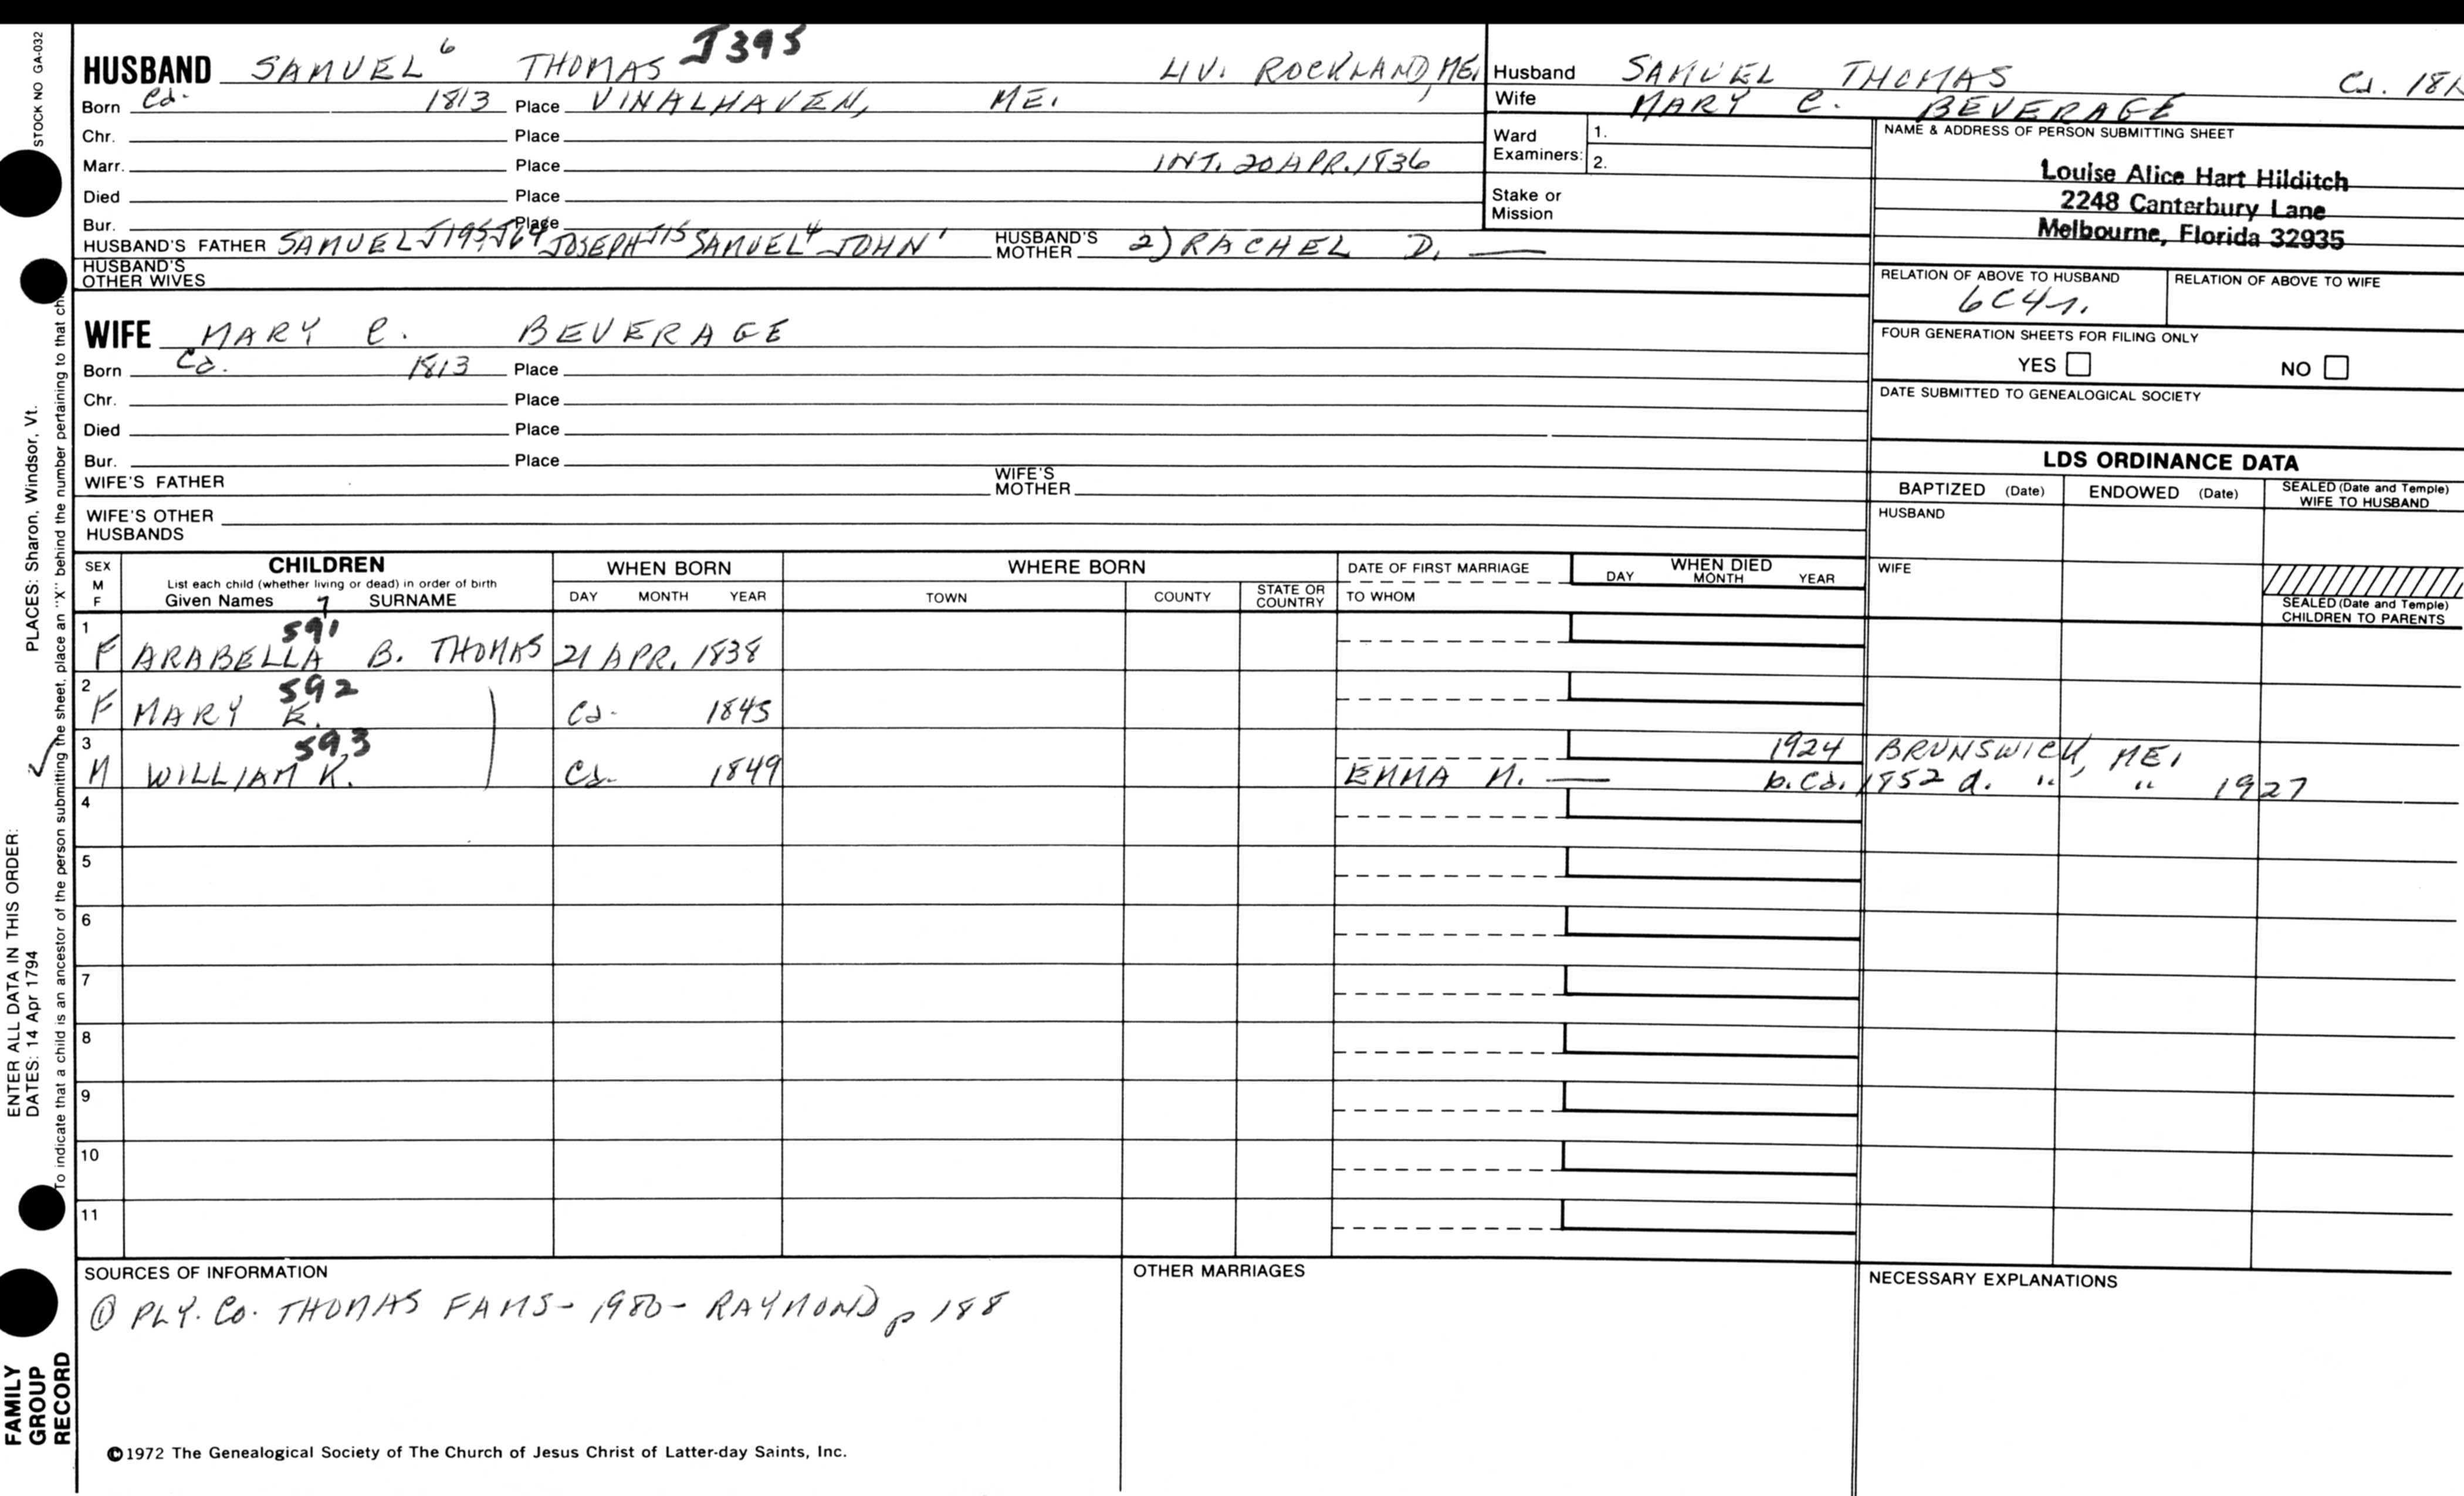 STOCK NO GA-032
HUSBAND SAMUEL 6 THOMAS J395 LIV. ROCKLAND, ME.
Born Ca. 1813 Place VINALHAVEN, ME.
Chr. Place
Marr. Place INT. 20 APR. 1836
Died Place
Bur. Place
HUSBAND'S FATHER SAMUEL J195, J64 JOSEPH J15 SAMUEL 4 JOHN 1 HUSBAND'S MOTHER 2) RACHEL D. —
HUSBAND'S OTHER WIVES
WIFE MARY C. BEVERAGE
Born Ca. 1813 Place
Chr. Place
Died Place
Bur. Place
WIFE'S FATHER WIFE'S MOTHER
WIFE'S OTHER HUSBANDS
Husband SAMUEL THOMAS Ca. 181
Wife MARY C. BEVERAGE
Ward Examiners: 1.
2.
Stake or Mission
NAME & ADDRESS OF PERSON SUBMITTING SHEET
Louise Alice Hart Hilditch
2248 Canterbury Lane
Melbourne, Florida 32935
RELATION OF ABOVE TO HUSBAND RELATION OF ABOVE TO WIFE
6C4r.
FOUR GENERATION SHEETS FOR FILING ONLY
YES NO
DATE SUBMITTED TO GENEALOGICAL SOCIETY
LDS ORDINANCE DATA
BAPTIZED (Date) ENDOWED (Date) SEALED (Date and Temple) WIFE TO HUSBAND
HUSBAND
WIFE
SEALED (Date and Temple) CHILDREN TO PARENTS
SEX M F CHILDREN WHEN BORN WHERE BORN DATE OF FIRST MARRIAGE WHEN DIED
List each child (whether living or dead) in order of birth
Given Names 7 SURNAME DAY MONTH YEAR TOWN COUNTY STATE OR COUNTRY TO WHOM DAY MONTH YEAR
1 591
F ARABELLA B. THOMAS 21 APR. 1838
2 592
F MARY E. Ca. 1845
3 593 1924 BRUNSWICK, ME.
M WILLIAM K. Ca. 1849 EMMA M. — b. Ca. 1852 d. " " 1927
4
5
6
7
8
9
10
11
SOURCES OF INFORMATION OTHER MARRIAGES NECESSARY EXPLANATIONS
① PLY. CO. THOMAS FAMS - 1980 - RAYMOND p 188
©1972 The Genealogical Society of The Church of Jesus Christ of Latter-day Saints, Inc.
FAMILY GROUP RECORD
ENTER ALL DATA IN THIS ORDER:
DATES: 14 Apr 1794 PLACES: Sharon, Windsor, Vt.
To indicate that a child is an ancestor of the person submitting the sheet, place an "X" behind the number pertaining to that